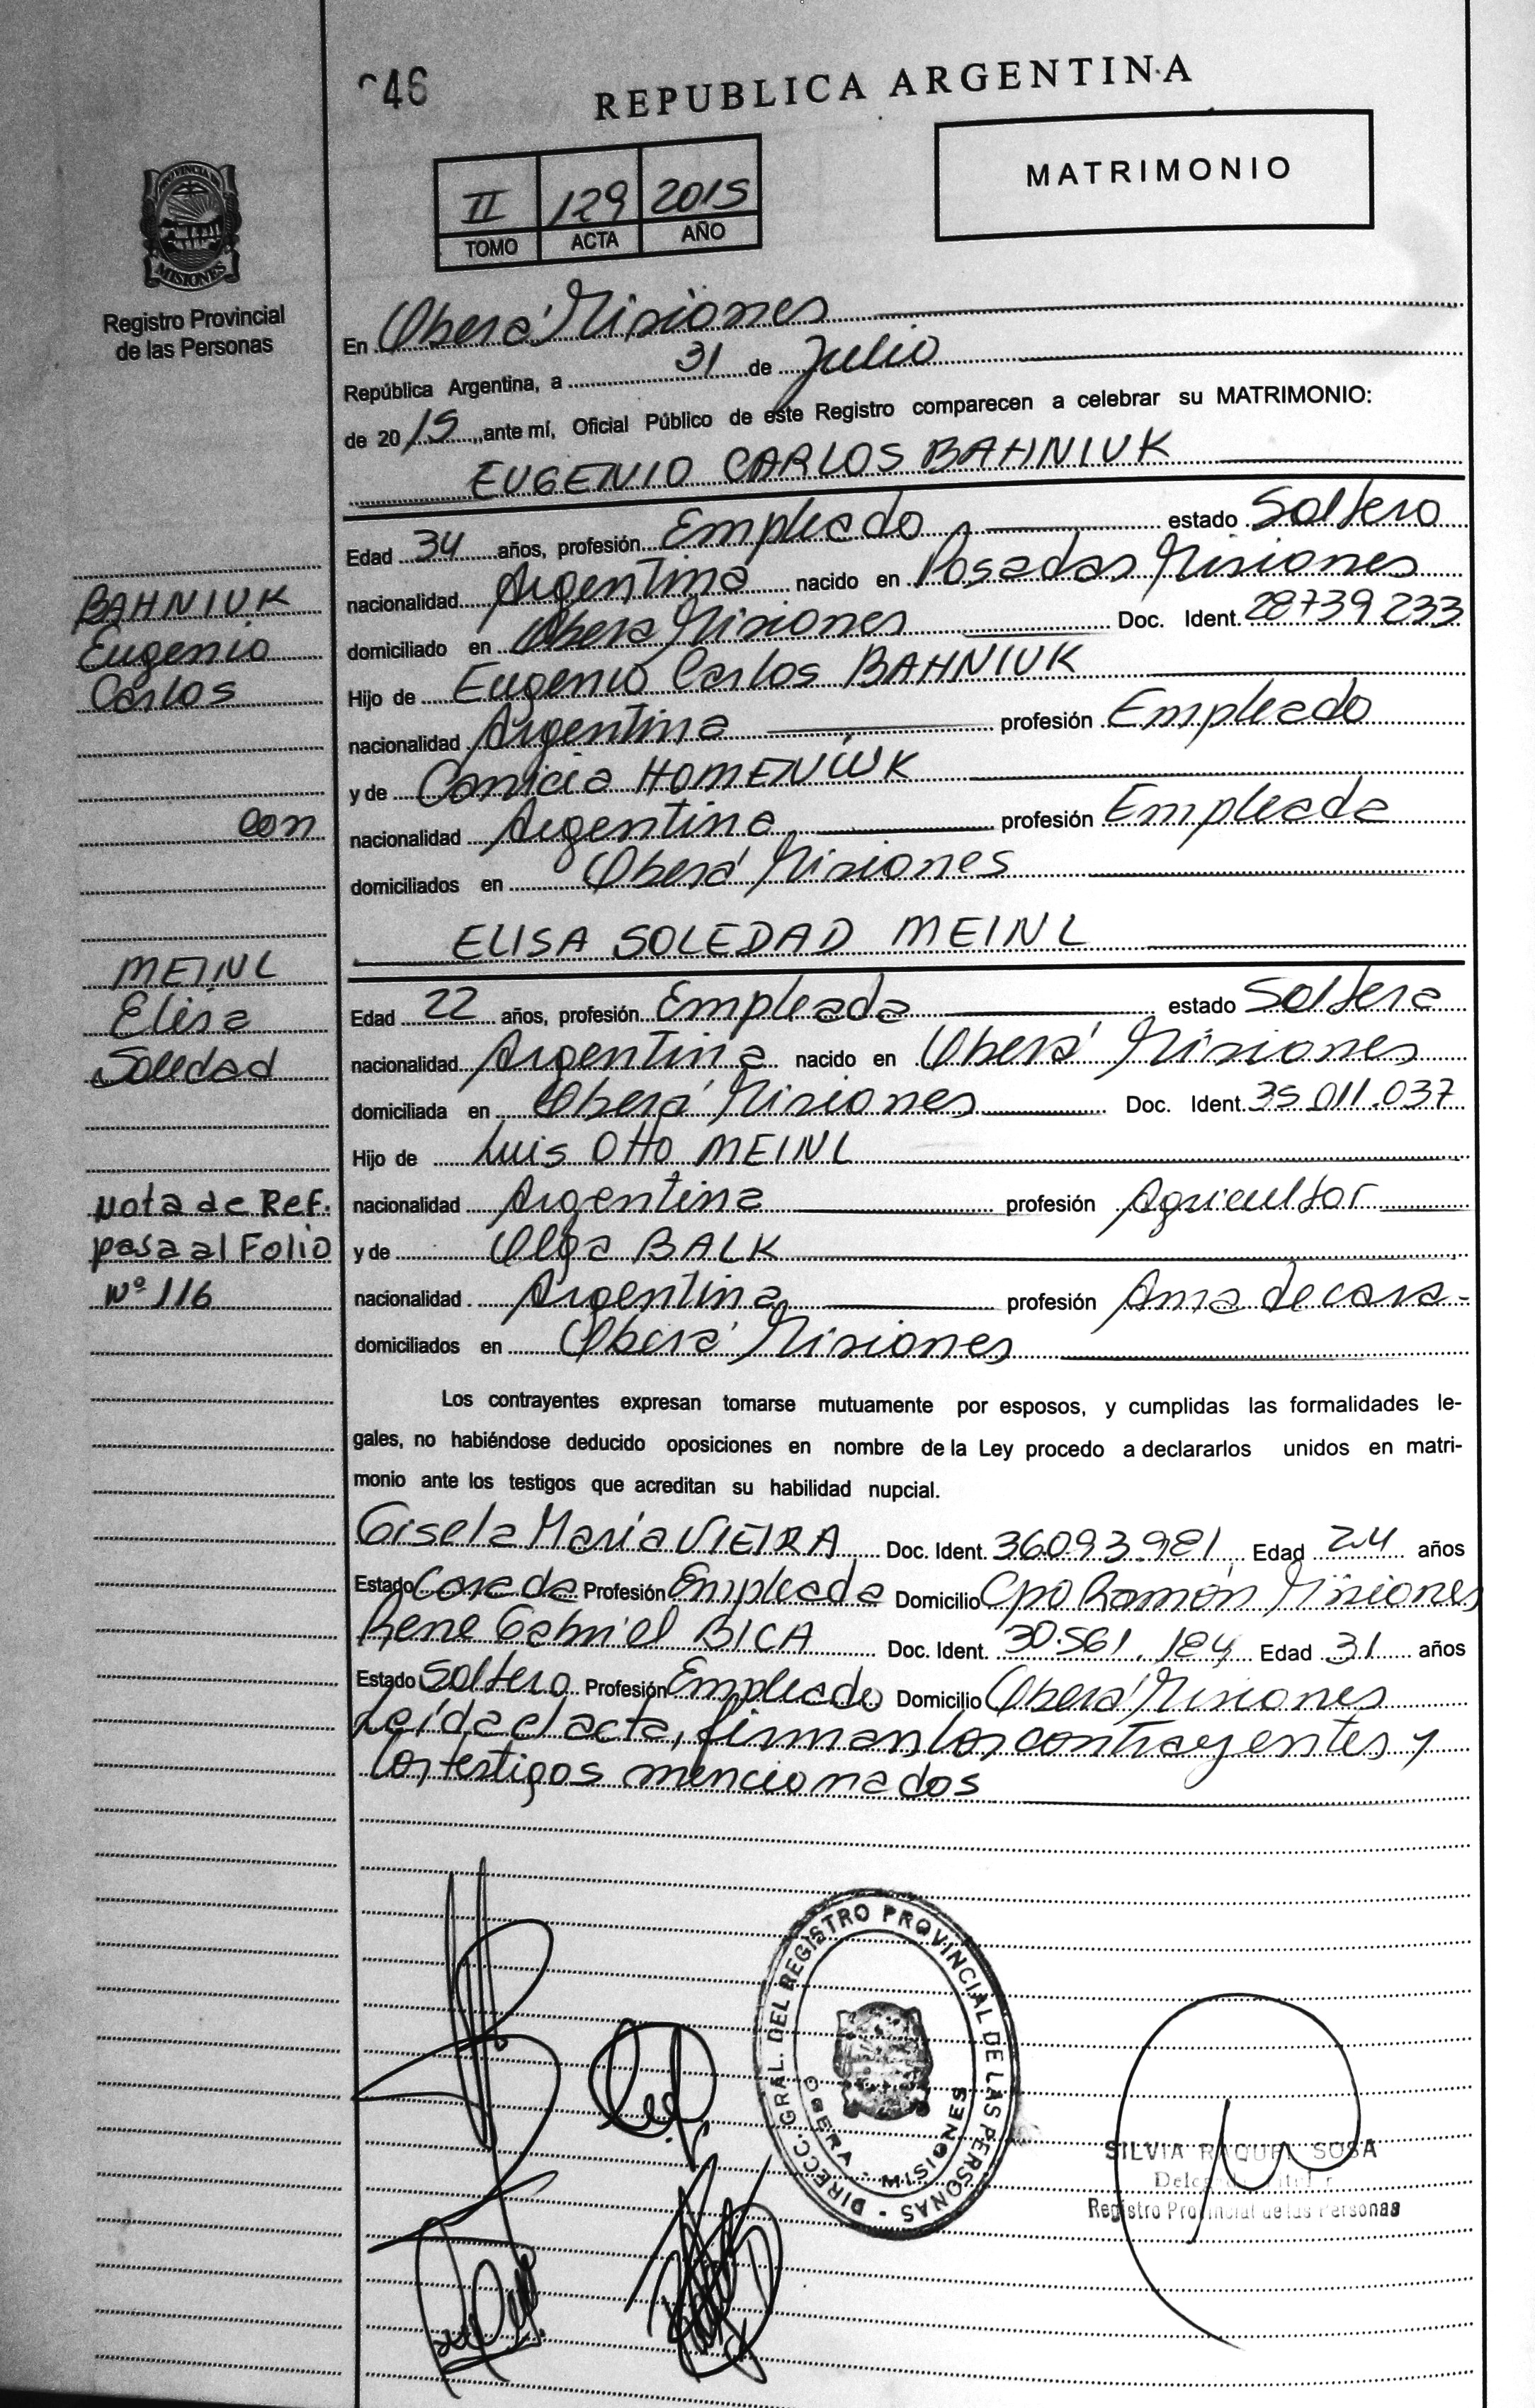 046
REPUBLICA ARGENTINA
MATRIMONIO
II 129 2015
TOMO ACTA AÑO
PROVINCIA DE
MISIONES
Registro Provincial
de las Personas
En Oberá Misiones
República Argentina, a 31 de Julio
de 20 15, ante mí, Oficial Público de este Registro comparecen a celebrar su MATRIMONIO:
EUGENIO CARLOS BAHNIUK
Edad 34 años, profesión Empleado estado Soltero
nacionalidad Argentina nacido en Posadas Misiones
domiciliado en Oberá Misiones Doc. Ident. 28739.233
Hijo de Eugenio Carlos BAHNIUK
nacionalidad Argentina profesión Empleado
y de HOMENIUK
nacionalidad Argentina profesión Empleada
domiciliados en Oberá Misiones
BAHNIUK
Eugenio
Carlos
con
MEINL
Elisa
Soledad
ELISA SOLEDAD MEINL
Edad 22 años, profesión Empleada estado Soltera
nacionalidad Argentina nacido en Oberá Misiones
domiciliada en Oberá Misiones Doc. Ident. 35.011.037
Hijo de Luis Otto MEINL
nacionalidad Argentina profesión Agricultor
y de Olga BALK
nacionalidad Argentina profesión Ama de casa
domiciliados en Oberá Misiones
Nota de Ref.
pasa al Folio
Nº 116
Los contrayentes expresan tomarse mutuamente por esposos, y cumplidas las formalidades le-
gales, no habiéndose deducido oposiciones en nombre de la Ley procedo a declararlos unidos en matri-
monio ante los testigos que acreditan su habilidad nupcial.
Gisela María VIEIRA Doc. Ident. 36093.981 Edad 24 años
Estado Casada Profesión Empleada Domicilio Cpo Ramón Misiones
Rene Gabriel BICA Doc. Ident. 30.561.184 Edad 31 años
Estado Soltero Profesión Empleado Domicilio Oberá Misiones
Leída el acta, firman los contrayentes y
los testigos mencionados
DIRECC. GRAL. DEL REGISTRO PROVINCIAL DE LAS PERSONAS
OBERA - MISIONES
SILVIA RAQUEL SOSA
Delegada Titular
Registro Provincial de las Personas